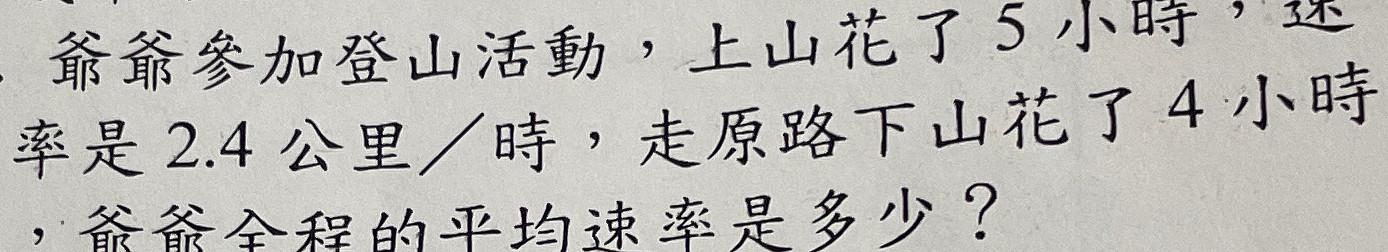 爺爺參加登山活動，上山花了 5 小時，速
率是 2.4 公里／時，走原路下山花了 4 小時
，爺爺全程的平均速率是多少？